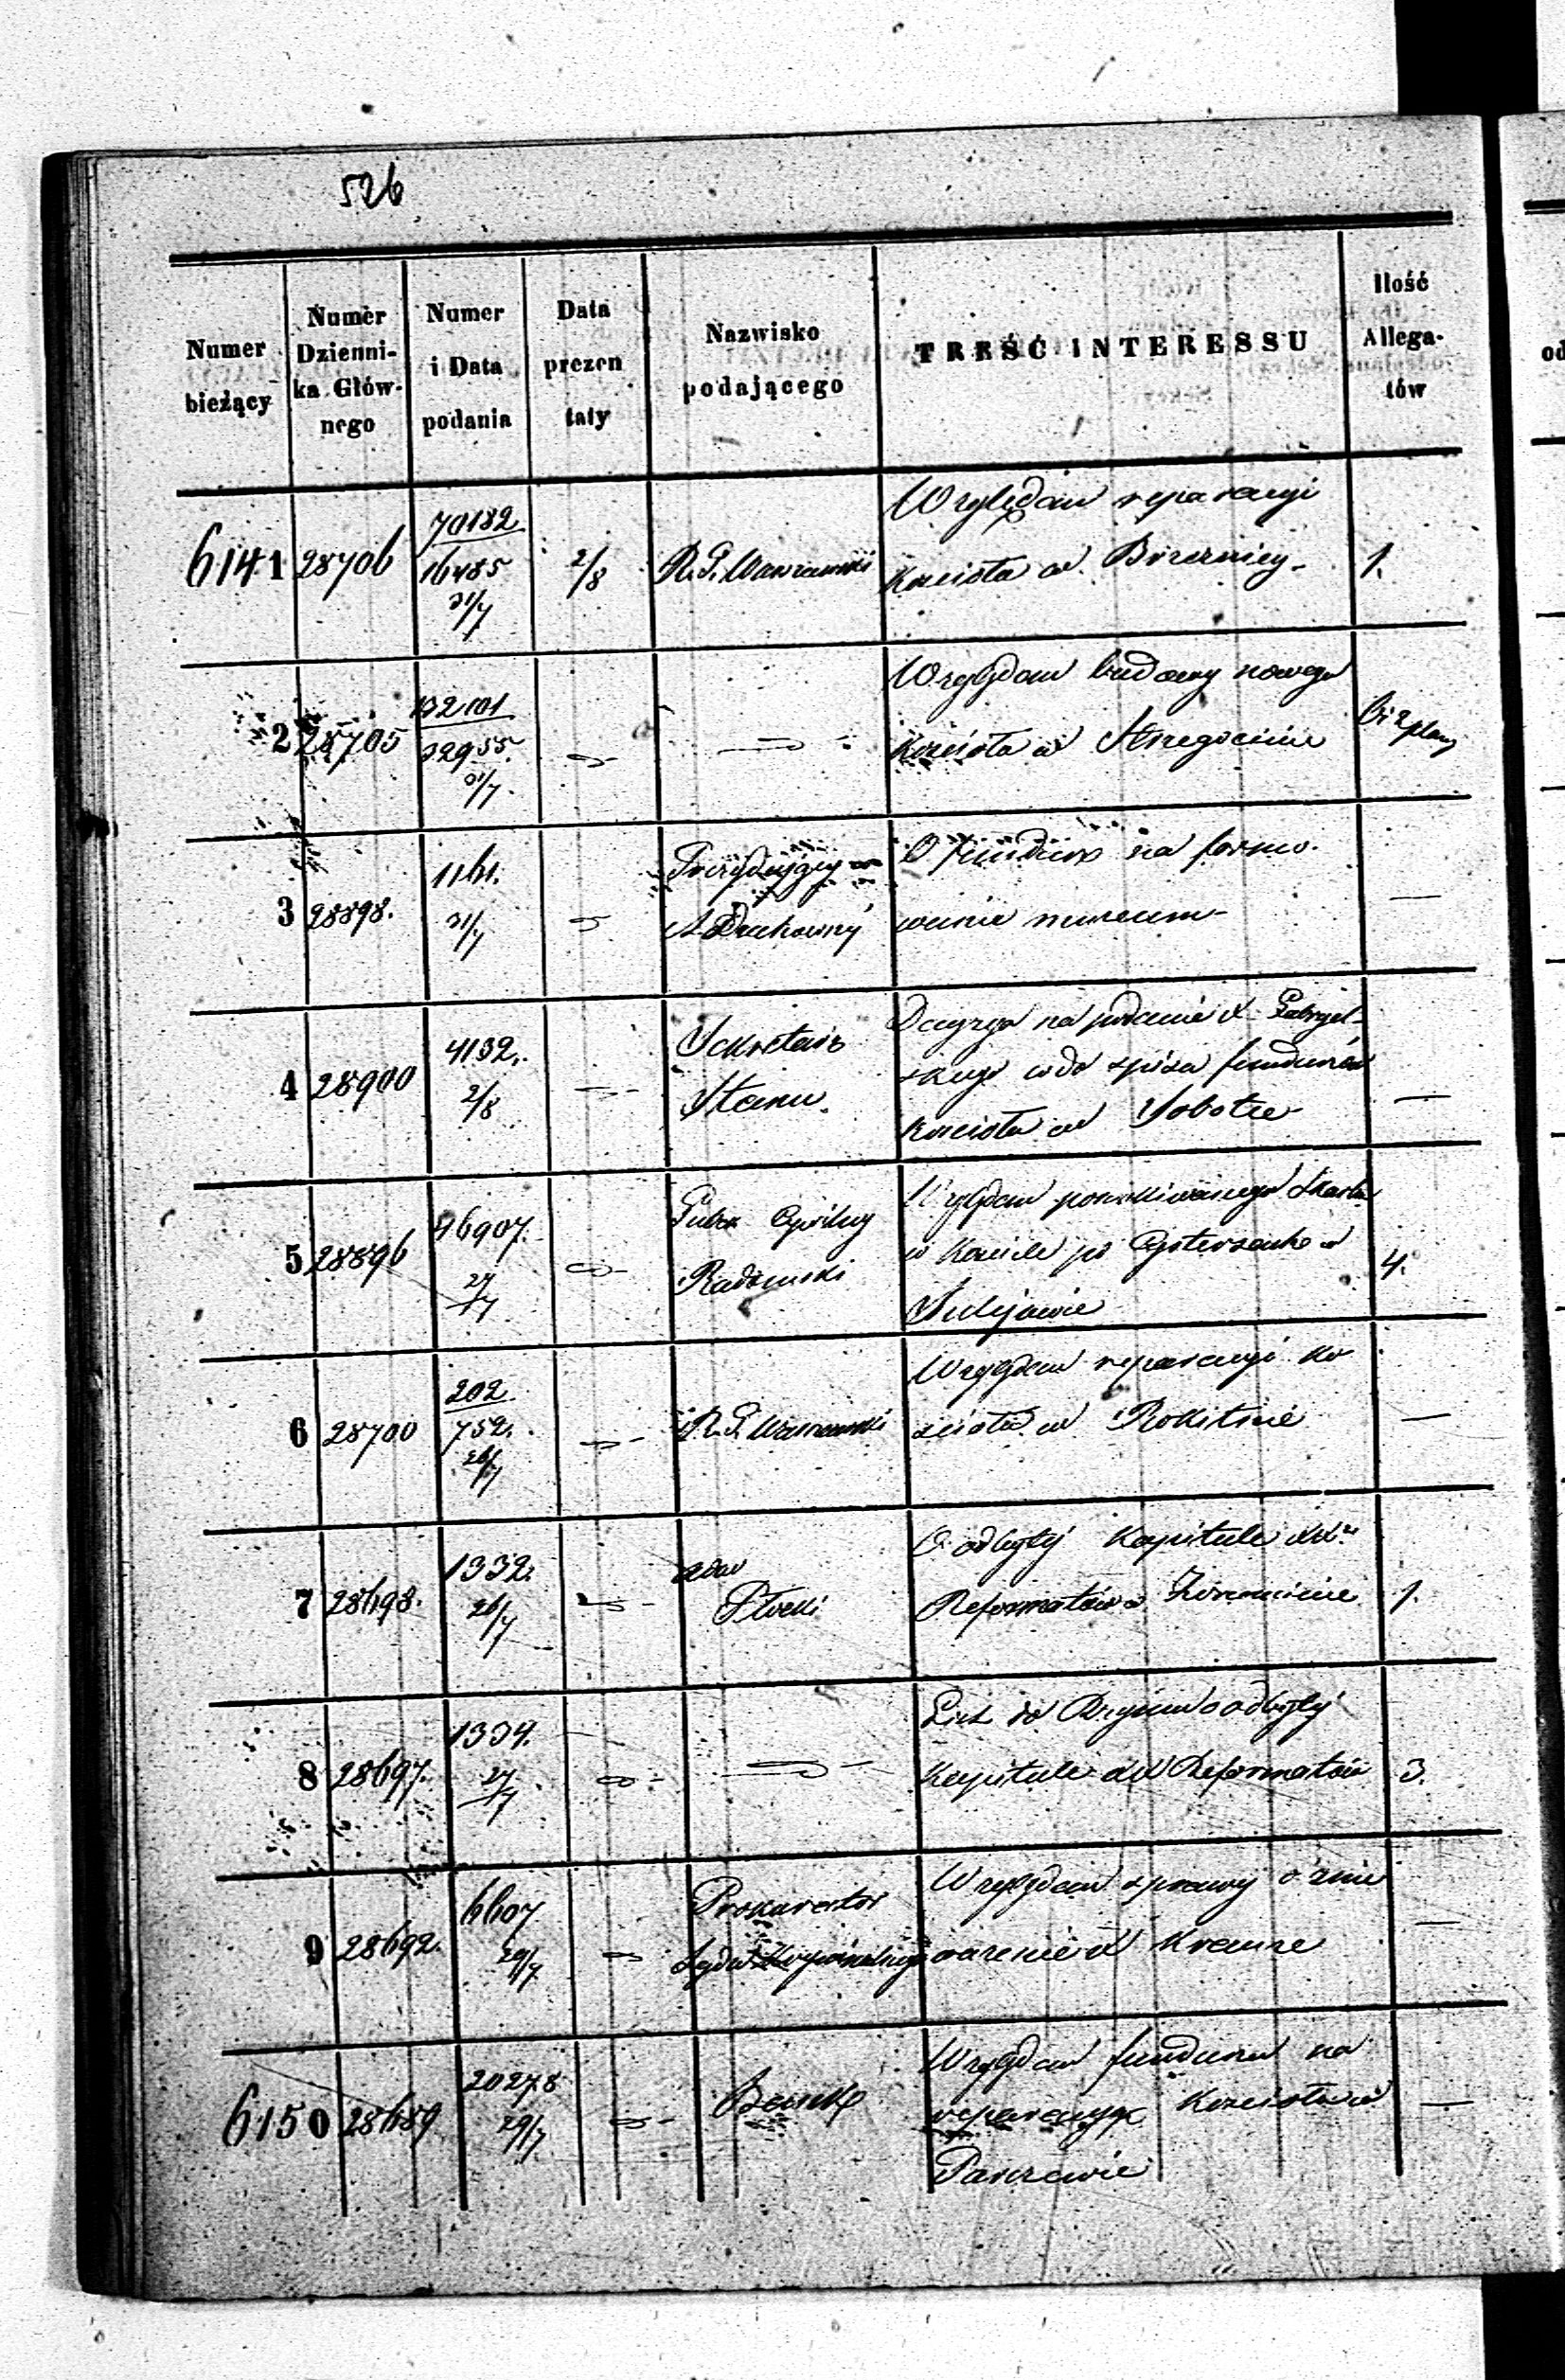 526
Numer bieżący | Numer Dziennika Głównego | Numer i Data podania | Data prezentaty | Nazwisko podającego | TREŚĆ INTERESSU | Ilość Allegatów
6141 | 28706 | 70182 / 16485 31/7 | 2/8 | R. G. Warszawski | Względem reparacyi
Kościoła w | 1.
2 | 28705 | 32955. 31/7 | Względem budowy nowego
kościoła w Strzegocinie | 2 plany
3 | 28898. | 1161. 31/7 | Prezydujący w | O fundusz na formo
wanie museum
4 | 28900 | 4132. 2/8 | Sekretarz
Stanu. | Decyzya na podanie X
skiego co do spisu funduszów
kościoła w Sobotce
5 | 28896 | 46907. 27/7 | Guber Cywilny
Radomski | Względem poszukiwanego Skarbu
w Kościele po Cystersach w
Sulejowie | 4.
6 | 28700 | 202 / 752. 26/7 | R. G. Warszawski | Względem reparacyi ko
ścioła w Rokitnie
7 | 28698. | 1332. 26/7 | Adm
Płocki | O odbytej Kapitule XX
Reformatów w | 1.
8 | 28697. | 1334. 27/7 | List do Rzymu o odbytej
Kapitule XX Reformatów | 3.
9 | 28692. | 6607 29/7 | Prokurator
Sądu Kryminalnego | Względem sprawy o znie
ważenie X Krause
6150 | 28689 | 20278 29/7 | Względem funduszu na
reparacyę Kościoła w
Parczewie